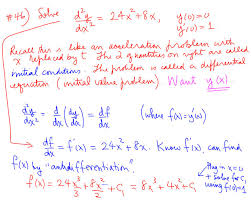 #46) Solve d²y/dx² = 24x² + 8x, y(0)=0
y'(0)=1
Recall this is like an acceleration problem with
x replaced by t. The 2 quantities on right are called
initial conditions. The problem is called a differential
equation (initial value problem) Want y(x)
d²y/dx² = d/dx (dy/dx) = df/dx (where f(x)=y'(x))
df/dx = f'(x) = 24x² + 8x. Know f'(x), can find
f(x) by "antidifferentiation".
f(x) = 24x³/3 + 8x²/2 + C₁ = 8x³ + 4x² + C₁
x=0
+ solve for C₁
using f(0)=1